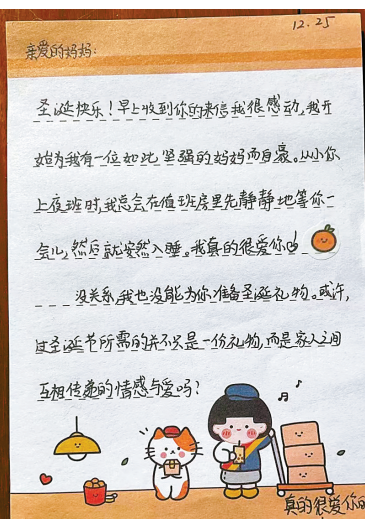 12.25
亲爱的妈妈:
圣诞快乐!早上收到你的来信我很感动,我开
始为我有一位如此坚强的妈妈而自豪。从小你
上夜班时,我总会在值班房里先静静地等你一
会儿,然后就安然入睡。我真的很爱你
没关系,我也没能为你准备圣诞礼物。或许,
过圣诞节所需的并不只是一份礼物,而是家人之间
互相传递的情感与爱吗?
真的很爱你的